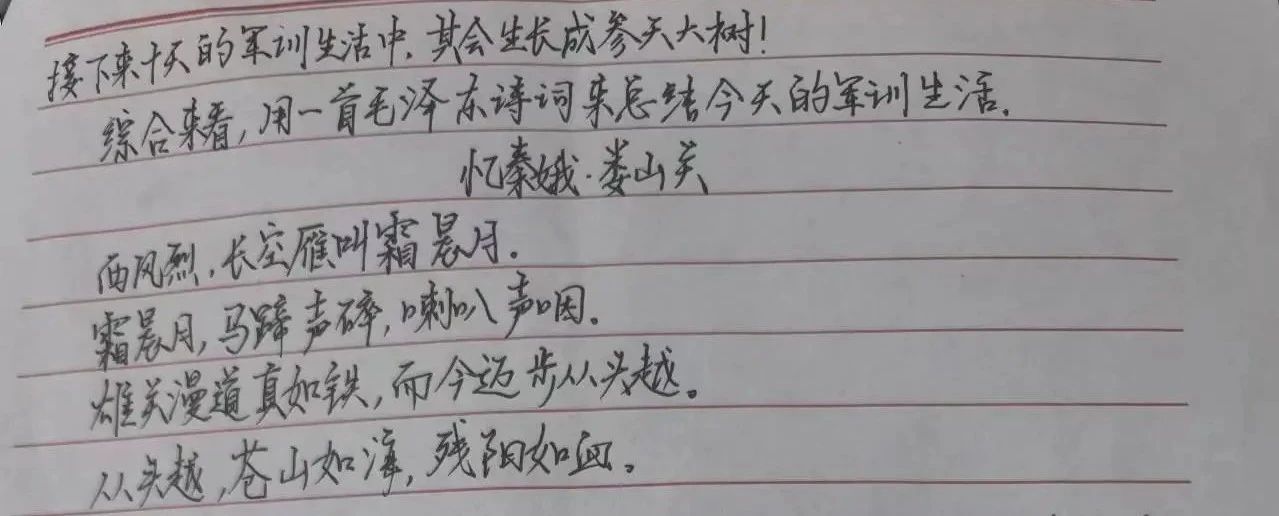 接下来十天的军训生活中,其会生长成参天大树!
综合来看,用一首毛泽东诗词来总结今天的军训生活.
忆秦娥·娄山关
西风烈,长空雁叫霜晨月.
霜晨月,马蹄声碎,喇叭声咽.
雄关漫道真如铁,而今迈步从头越。
从头越,苍山如海,残阳如血。